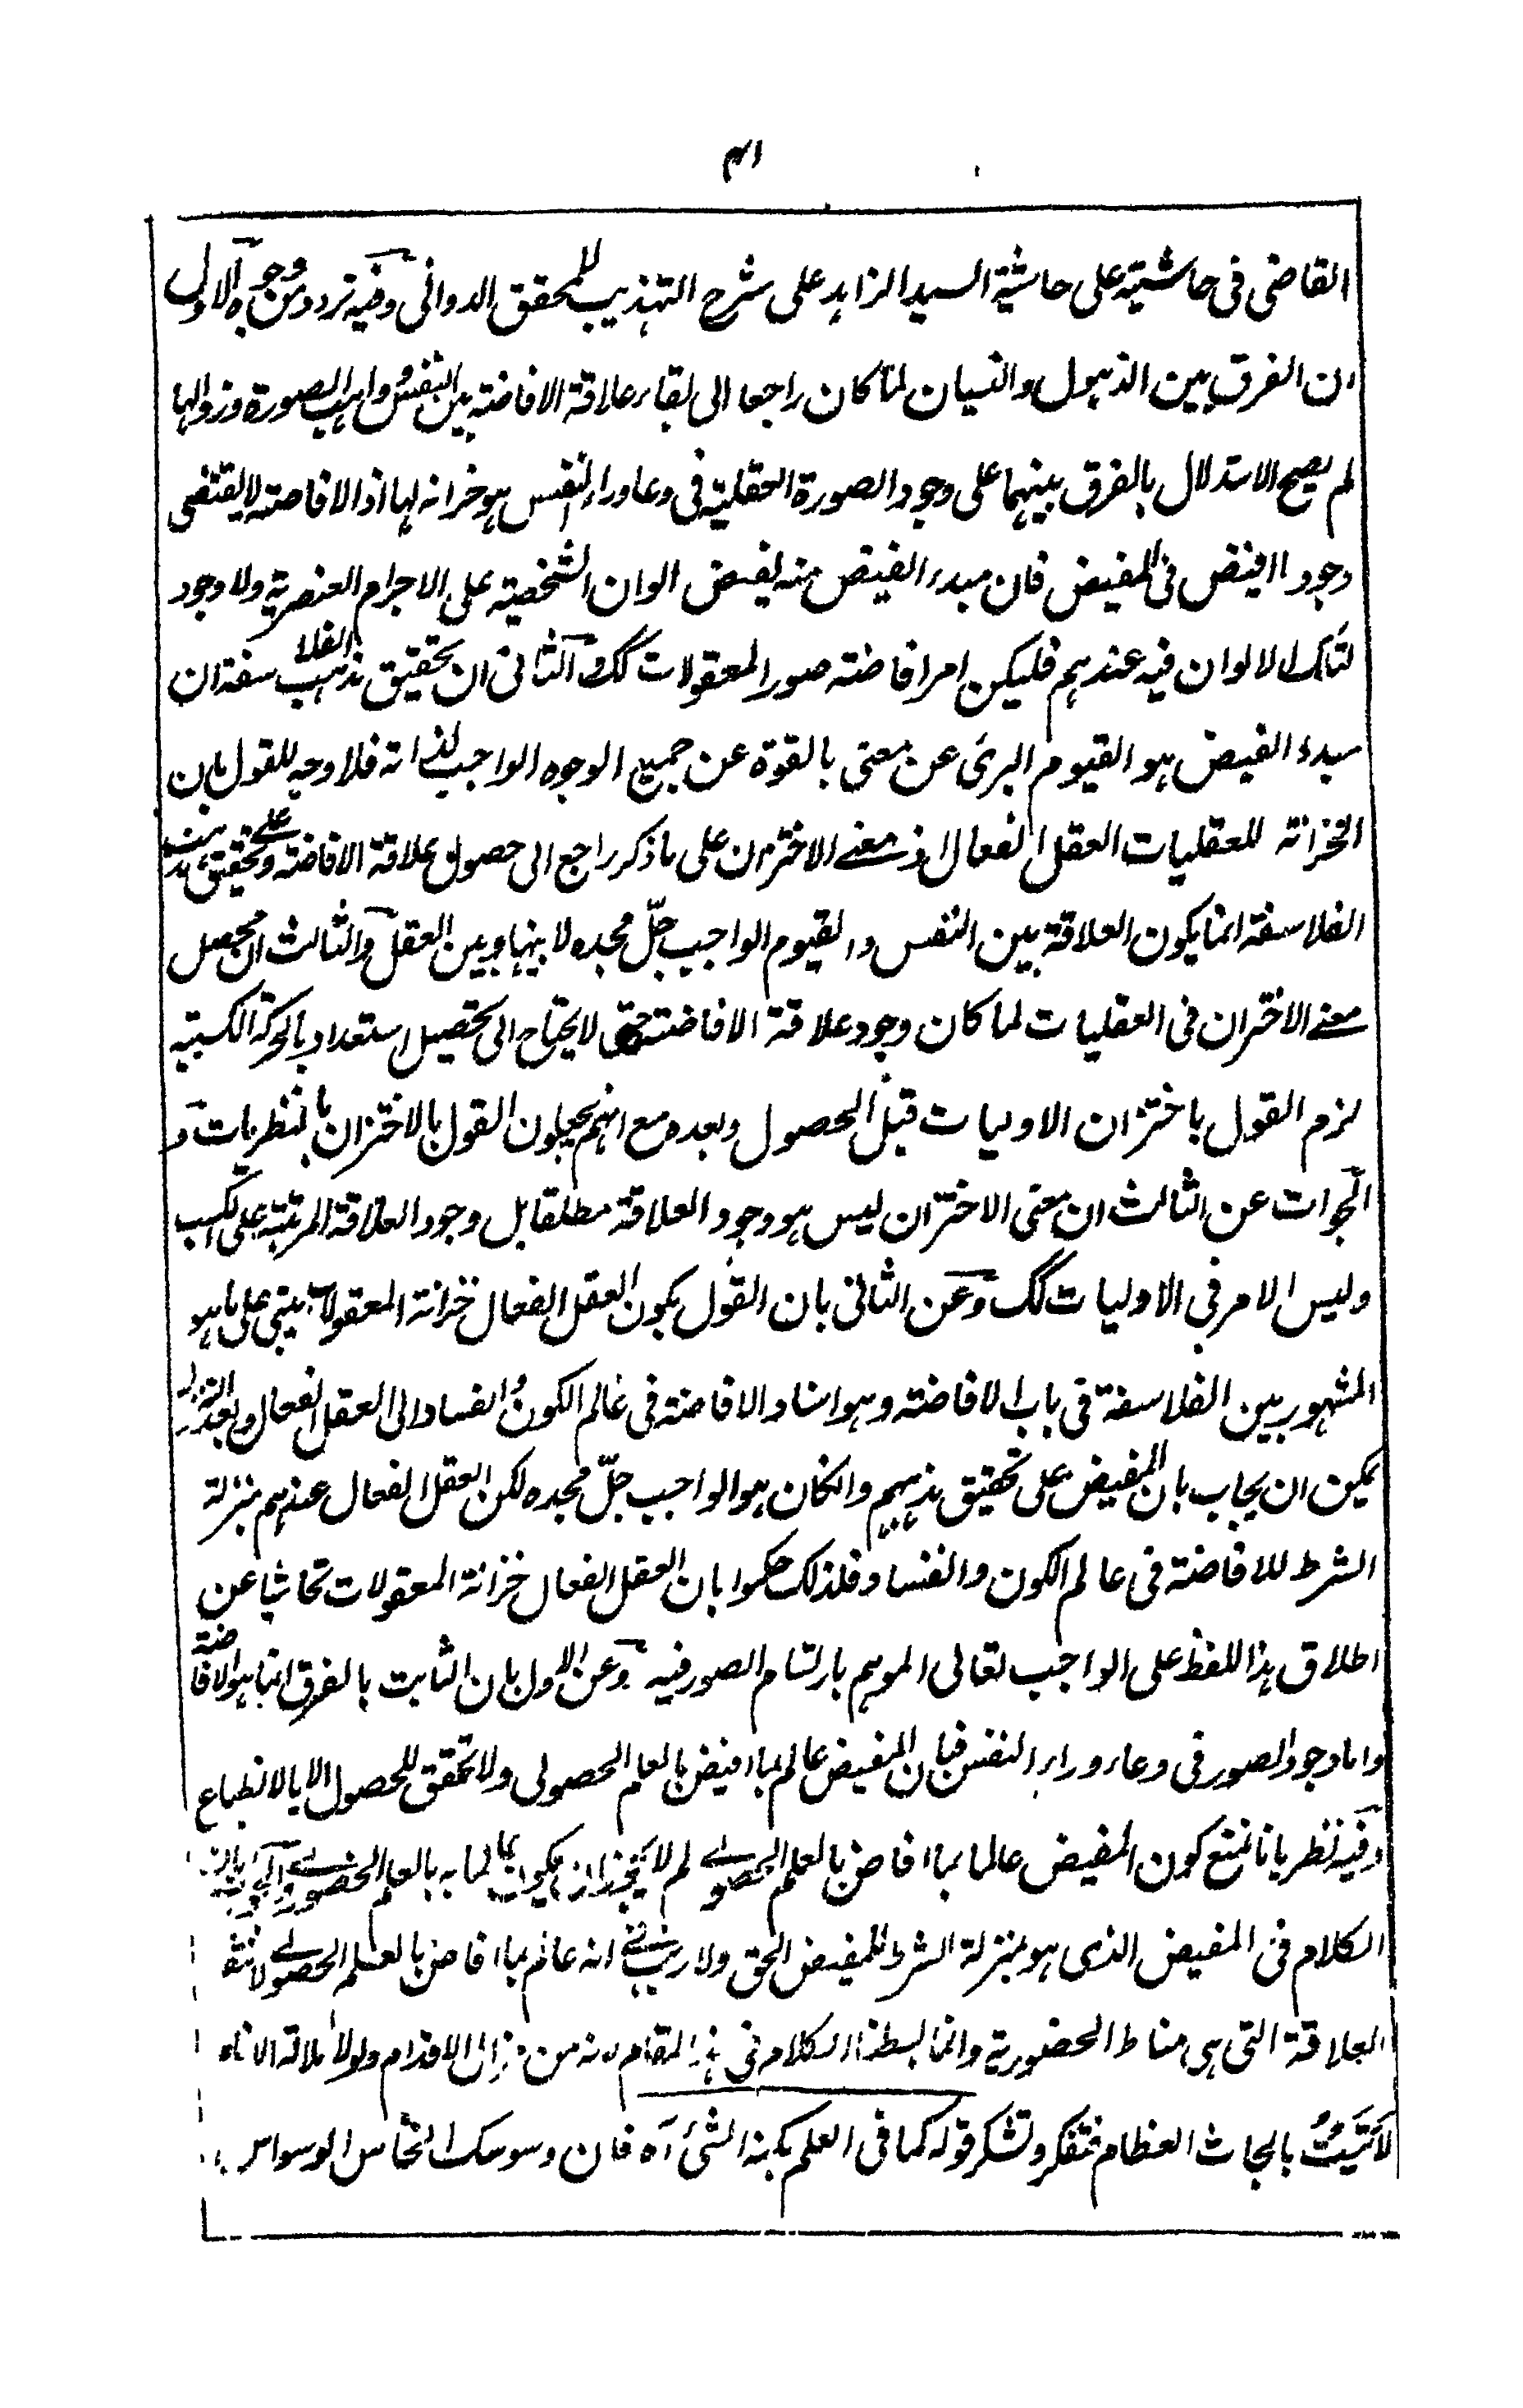 ۴۱
القاضی فی حاشیته علی حاشیة السید الزاهد علی شرح التهذیب للمحقق الدوانی وفیه تردد من وجوه الاول
ان الفرق بین الذهول والنسیان لما کان راجعا الی بقاء علاقة الافاضة بین النفس واهب الصورة وزوالها
لم یصح الاستدلال بالفرق بینهما علی وجود الصورة العقلیة فی وعاء وراء النفس هو خزانة لها اذ الافاضة لا یقتضی
وجود ما افیض فی المفیض فان مبدء الفیض منه یفیض الوان الشخصیة علی الاجرام العنصریة ولا وجود
لتلک الالوان فیه عندهم فلیکن امر افاضة صور المعقولات کک والثانی ان تحقیق مذهب الفلاسفة ان
مبدء الفیض هو القیوم البرئ عن معنی بالقوة عن جمیع الوجوه الواجب لذاته فلا وجه للقول بان
الخزانة للعقلیات العقل الفعال اذ معنے الاختزان علی ما ذکر راجع الی حصول علاقة الافاضة وعلے تحقیق مذهب
الفلاسفة انما یکون العلاقة بین النفس والقیوم الواجب جلّ مجده لا بینها وبین العقل والثالث ان محصل
معنے الاختزان فی العقلیات لما کان وجود علاقة الافاضة حتی لا یحتاج الی تحصیل استعداد بالحرکة الکسبیة
لزم القول باختزان الاولیات قبل الحصول وبعده مع انهم یحیلون القول بالاختزان بالنظریات و
الجواب عن الثالث ان معنی الاختزان لیس هو وجود العلاقة مطلقا بل وجود العلاقة المرتبة علی الکسب
ولیس الامر فی الاولیات کک وعن الثانی بان القول بکون العقل الفعال خزانة المعقولات یبتنی علی ما هو
المشهور بین الفلاسفة فی باب الافاضة وهو اسناد الافاضة فی عالم الکون والفساد الی العقل الفعال وبعد التنزل
یمکن ان یجاب بان المفیض علی تحقیق مذهبهم وان کان هو الواجب جلّ مجده لکن العقل الفعال عندهم بمنزلة
الشرط للافاضة فی عالم الکون والفساد فلذلک حکموا بان العقل الفعال خزانة المعقولات تحاشیا عن
اطلاق هذا اللفظ علی الواجب تعالی الموهم بارتسام الصور فیه وعن الاول بان الثابت بالفرق انما هو الافاضة
واما وجود الصور فی وعاء وراء النفس فبان المفیض عالم بما افیض بالعلم الحصولی ولا تحقق للحصول الا بالانطباع
وفیه نظر بانا نمنع کون المفیض عالما بما افاض بالعلم الحصولے لم لا یجوز ان یکون عالما به بالعلم الحضورے واجیب بان
الکلام فی المفیض الذی هو بمنزلة الشرط للمفیض الحق ولا ریب فے انه عالم بما افاض بالعلم الحصولے لانتفاء
العلاقة التی هی مناط الحضوریة وانما بسطنا الکلام فی هذا المقام لانه من مزال الاقدام ولولا ملالة الاناء
لأتیتُ بابحاث العظام فتفکر وتشکر قوله کما فی العلم بکنه الشئ آه فان وسوسک الخناس الوسواس